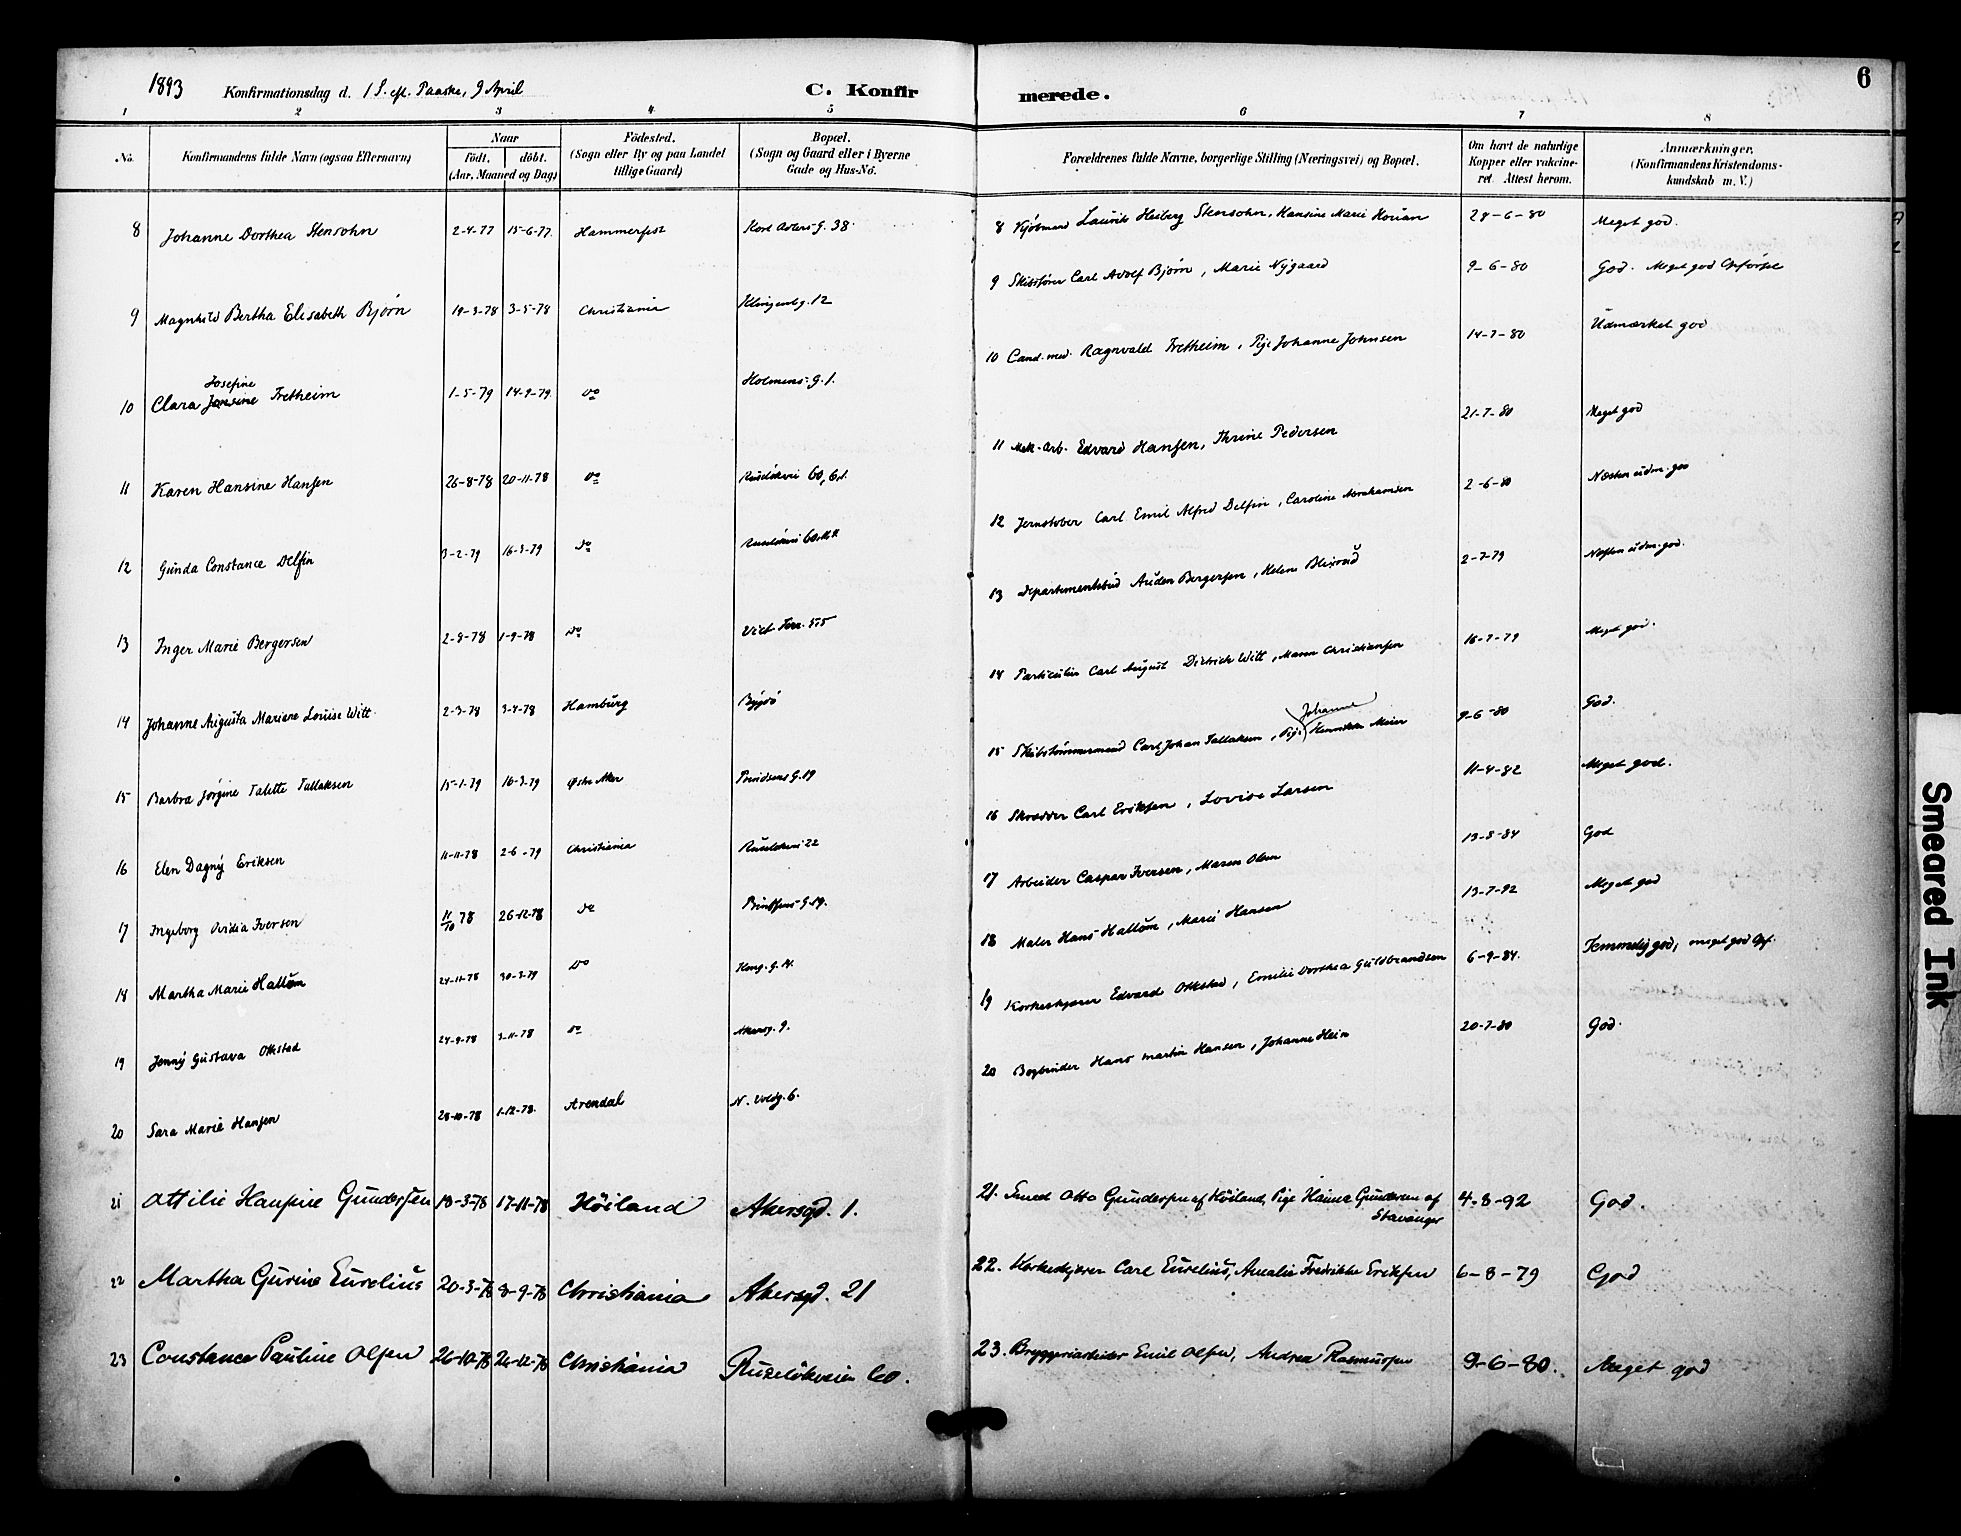 1893 Konfirmationsdag d. 1 S. eft. Paaske, 9 April C. Konfirmerede. 6
1 2 3 4 5 6 7 8
No. Konfirmandens fulde Navn (ogsaa Efternavn) Naar födt. döbt. (Aar, Maaned og Dag) Födested. (Sogn eller By og paa Landet tillige Gaard) Bopæl. (Sogn og Gaard eller i Byerne Gade og Hus-No. Forældrenes fulde Navne, borgerlige Stilling (Næringsvei) og Bopæl. Om havt de naturlige Kopper eller vakcineret. Attest herom. Anmærkninger. (Konfirmandens Kristendomskundskab m. V.)
8 Johanne Dorthea Stensohn 2-4-77 15-6-77 Hammerfest Karl Johans G. 38 8 Kjöbmand Laurits Hesberg Stensohn, Hansine Marie 28-6-80 Meget god.
9 Magnhild Bertha Elisabeth Bjørn 19-3-78 3-5-78 Christiania Klingenbg. 12 9 Skibsfører Carl Adolf Bjørn, Marie Nygaard 9-6-80 God. Meget god Opförsel
10 Clara Josefine Tretheim 1-5-79 14-9-79 do Holmens G. 1. 10 Cand. med. Ragnvald Tretheim, Pige Johanne Johnsen 14-7-80 Udmærket god
11 Karen Hansine Hansen 26-8-78 20-11-78 do Ruselökvei 60, 11 Mek. Arb. Edvard Hansen, Thrine Pedersen 21-7-80 Meget god
12 Gunda Constance Delfin 3-2-79 16-3-79 do Ruselökvei 60 12 Jernstøber Carl Emil Alfred Delfin, Caroline Abrahamsen 2-6-80 Næsten udm. god
13 Inger Marie Bergersen 2-8-78 1-9-78 do Vict. Terr. 13 Departementsbud Auden Bergersen, Helene Blixrud 2-7-79 Næsten udm. god.
14 Johanne Augusta Mariane Louise Witt 2-3-78 3-4-78 Hamburg Bygdö 14 Particulier Carl August Dietrich Witt, Maren Christiansen 16-7-79 Meget god.
15 Barbra Jørgine Talette Tallaksen 15-1-79 16-3-79 Østre Aker Prindsens G. 19 15 Skibstømmermand Carl Johan Tallaksen, Pige Johanne Henrikke Meier 9-6-80 God.
16 Elen Dagny Eriksen 11-11-78 2-6-79 Christiania Ruselökvei 22 16 Skrædder Carl Eriksen, Lovise Larsen 11-4-82 Meget god.
17 Ingeborg Ovidia Iversen 11/10 78 26-12-78 do Prindsens G. 19. 17 Arbeider Caspar Iversen, Maren Olsen 13-8-84 God
18 Martha Marie Hallum 24-11-78 30-3-79 do Kong. G. 14. 18 Maler Hans Hallum, Marie Hansen 13-7-92 Meget god
19 Jenny Gustava Ottestad 24-9-78 3-11-78 do Akersg. 9. 19 Korkeskjærer Edvard Ottestad, Emilie Dorthea Guldbrandsen 6-9-84. Temmelig god, meget god Opf.
20 Sara Marie Hansen 28-10-78 1-12-78. Arendal N. Voldg. 6. 20 Bogbinder Hans Martin Hansen, Johanne Hein 20-7-80 God.
21 Ottilie Hansine Gundersen 18-3-78 17-11-78 Höiland Akersgd. 1. 21. Smed Otto Gundersen af Höiland, Pige Hanne Gundersen af Stavanger 4-8-92 God.
22 Martha Gurine Eurelius 20-3-78 8-9-78 Christiania Akersgd. 21 22. Korkeskjærer Carl Eurelius, Amalie Fredrikke Eriksen 6-8-79 God
23 Constance Pauline Olsen 26-10-78 26-12-78 Christiania Ruselökveien 60. 23. Bryggeriarbeider Emil Olsen, Andrea Rasmussen 9-6-80. Meget god
Smeared Ink